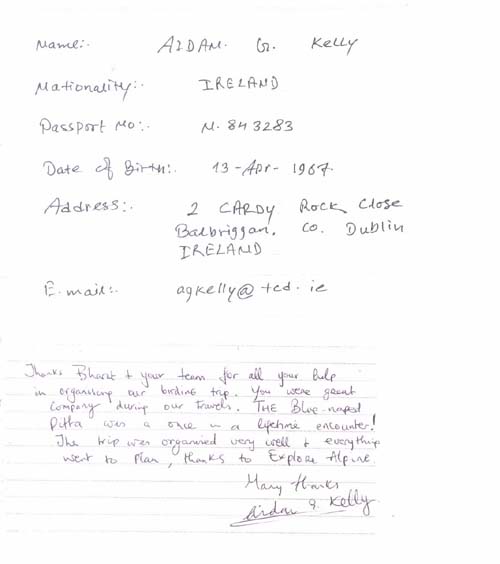 Name:. AIDAN. G. Kelly
Nationality:. IRELAND
Passport No:. N. 843283
Date of Birth:. 13-Apr-1967.
Address:. 2 CARDY Rock Close
Balbriggan. Co. Dublin
IRELAND
E.mail:. agkelly@tcd.ie
Thanks Bharat + your team for all your help
in organising our birding trip. You were great
company during our travels. THE Blue-naped
Pitta was a once in a lifetime encounter!
The trip was organised very well + everything
went to plan, thanks to Explore Alpine.
Many thanks
Aidan G. Kelly